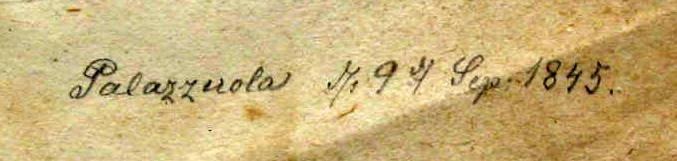 Palazzuola 9 Sep. 1845.